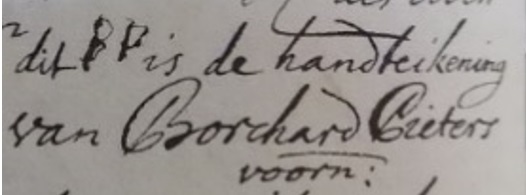 dit B P is de handteikening
van Borchard Pieters
voorn: